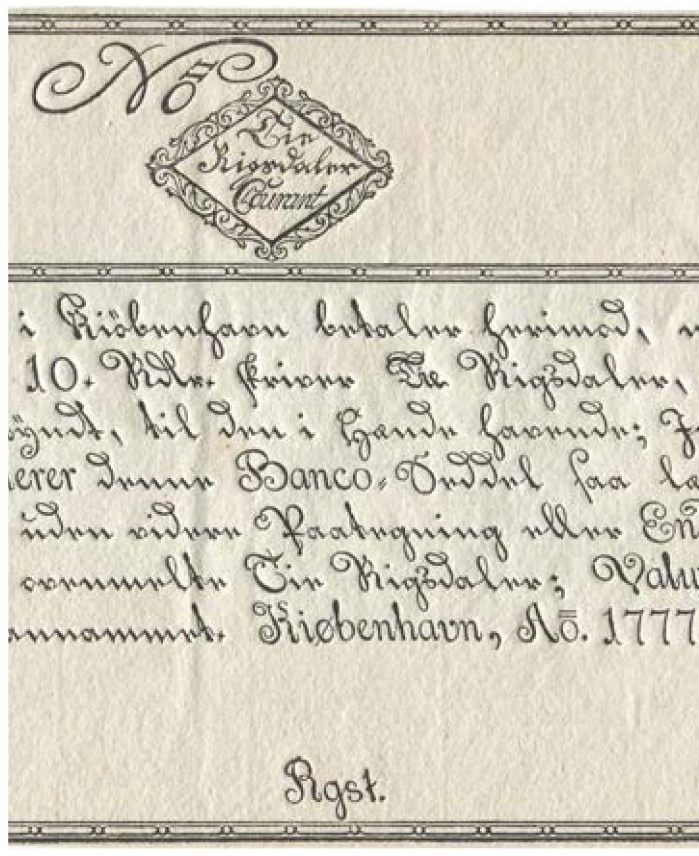 No
Tie
Rigsdaler
Courant
i Kiöbenhavn betaler herimod,
10. Rdlr. skriver Tie Rigsdaler,
yndt, til den i Hænde havende;
erer denne Banco-Seddel saa læ
uden videre Paategning eller En
ovenmelte Tie Rigsdaler; Valu
annammet. Kiøbenhavn, Aō. 1777
Rgst.